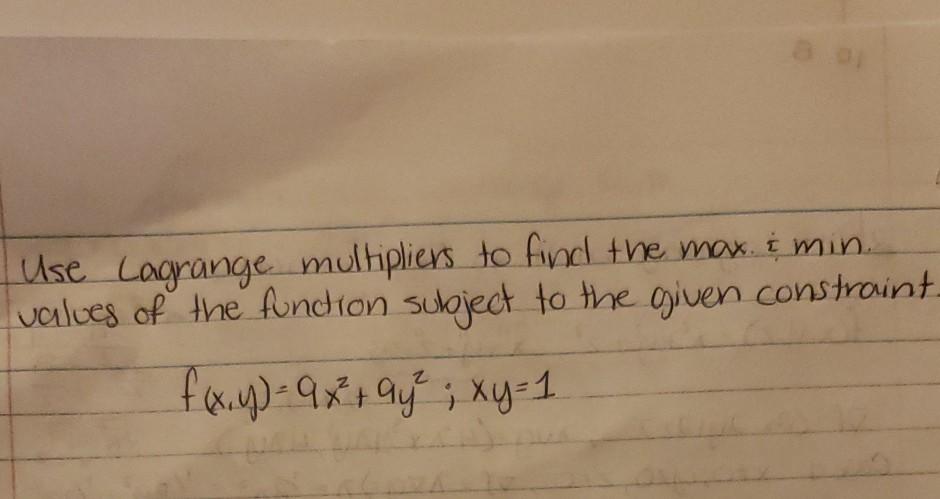 Use Lagrange multipliers to find the max. & min.
values of the function subject to the given constraint.
f(x,y)=9x²+9y² ; xy=1